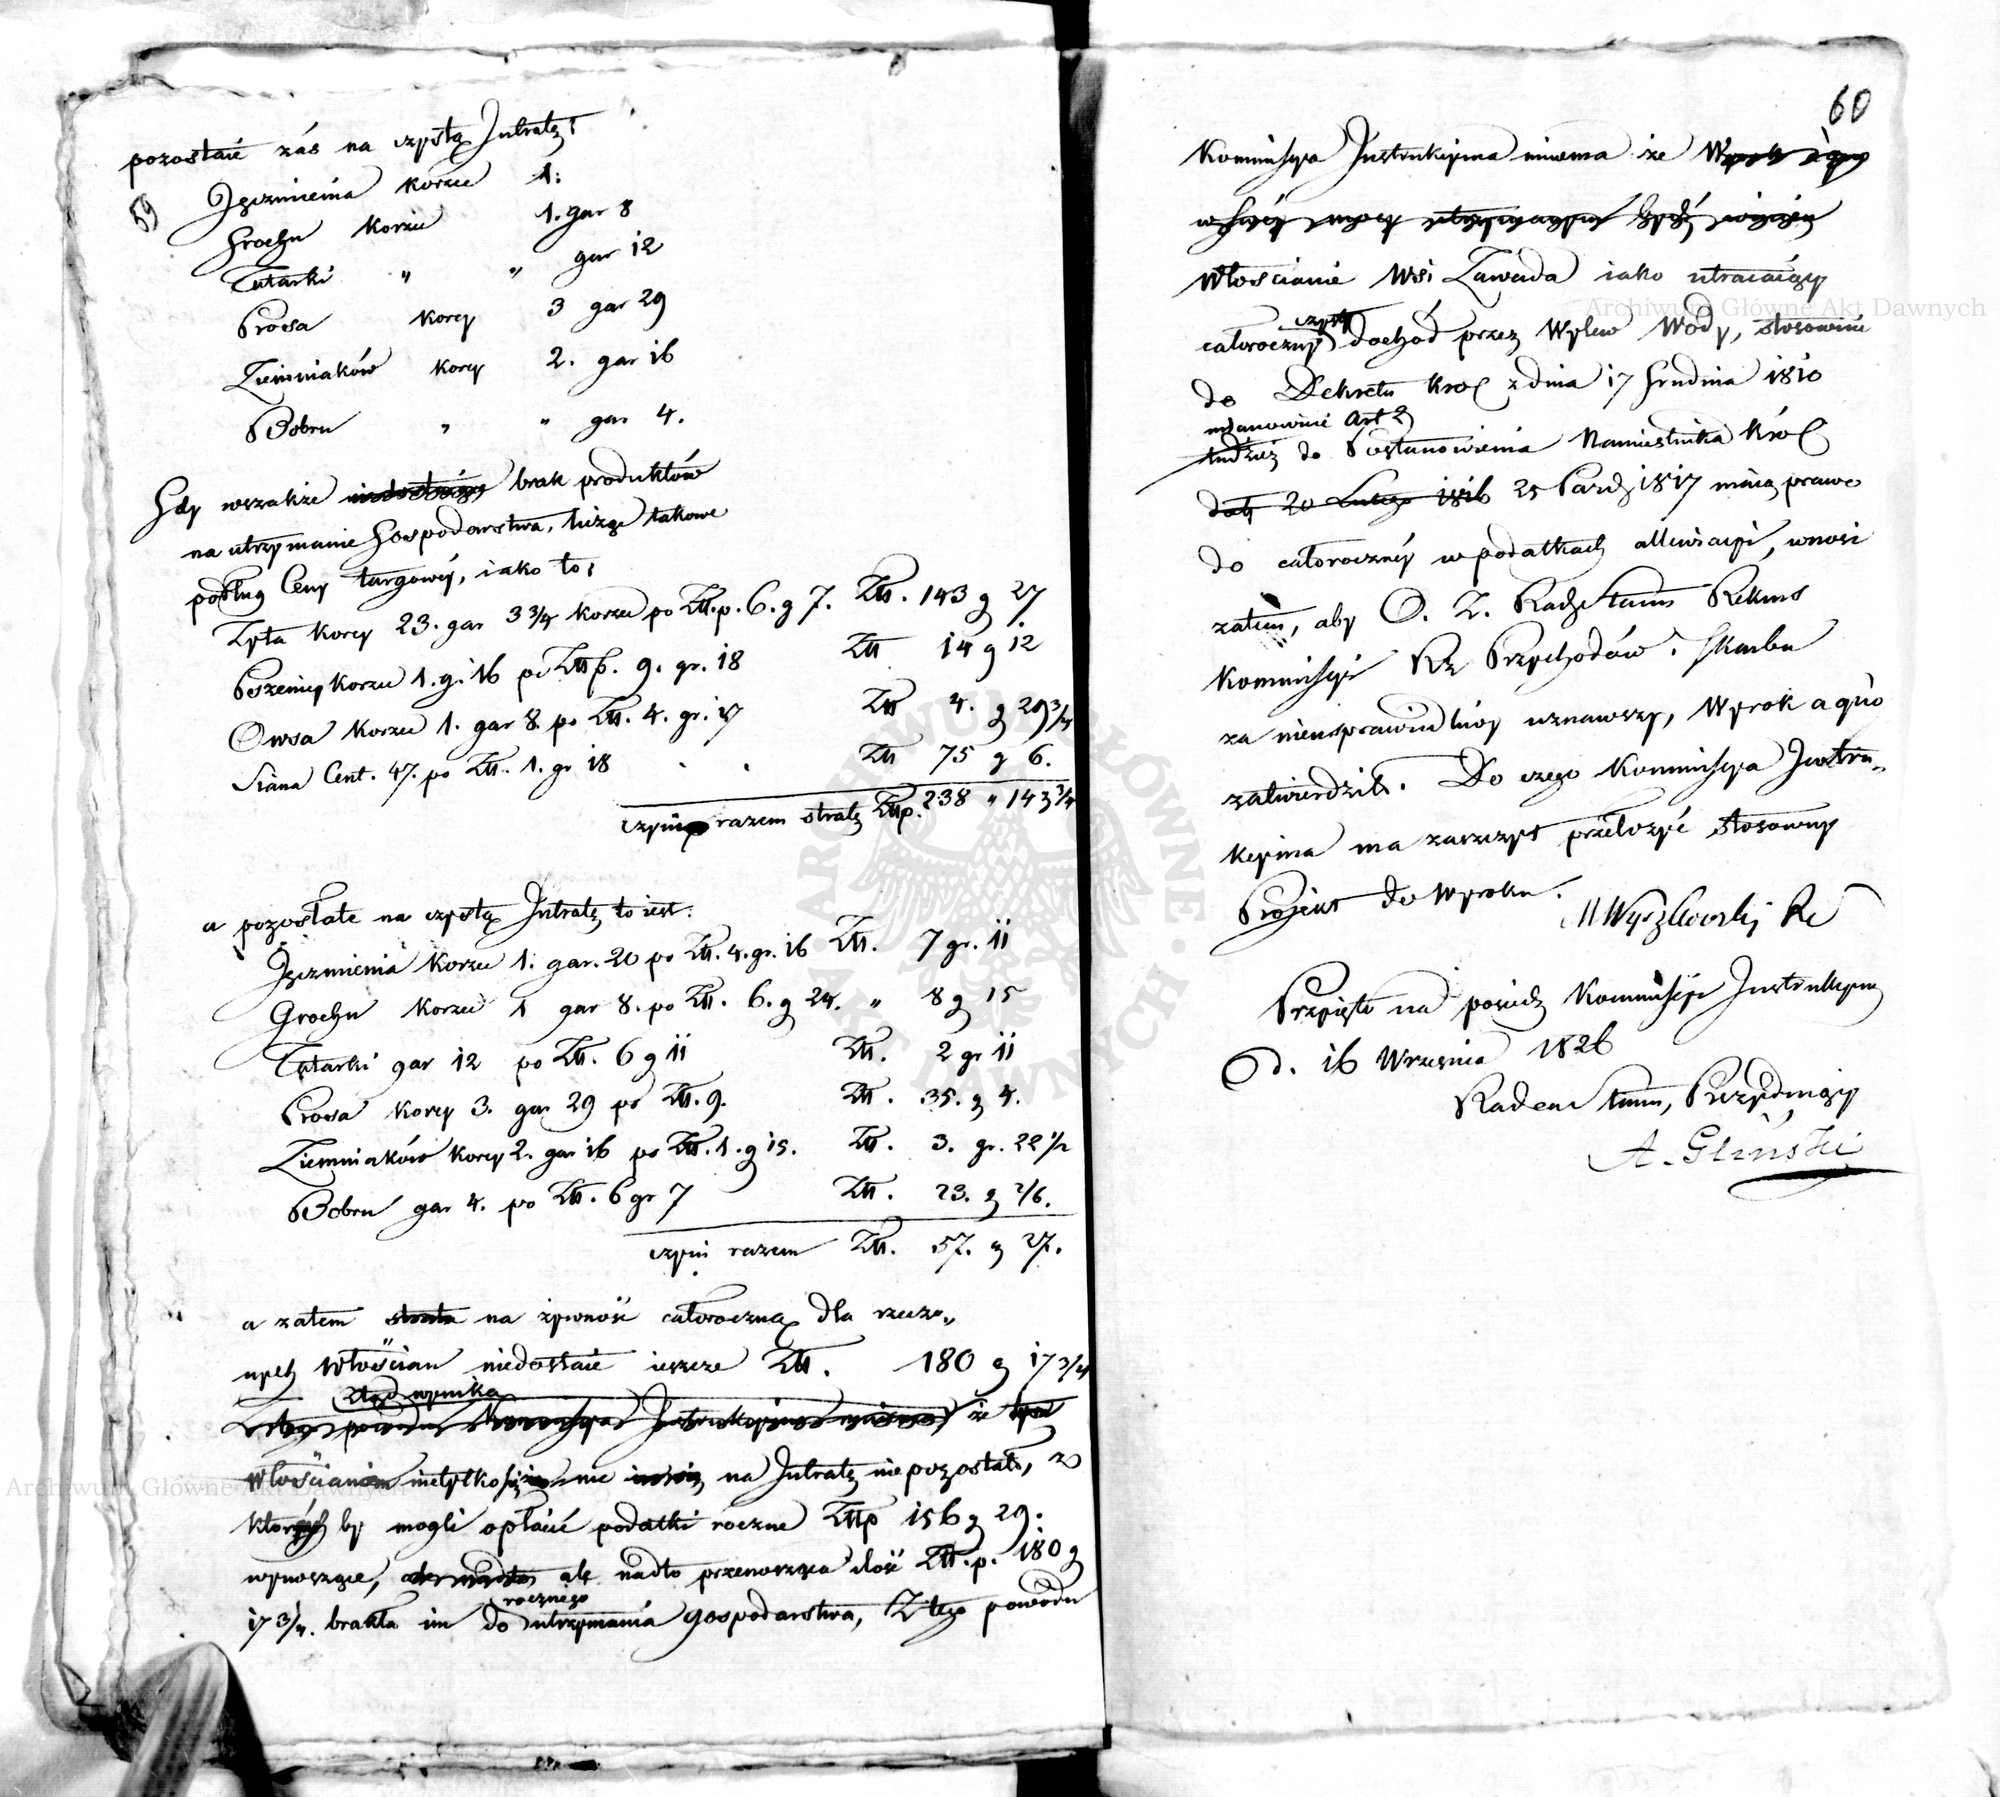 pozostaie zás na czystą Intratę:
59
Jęczmienia Korzec 1:
Grochu Korzec 1. gar 8
Tatarki " " gar 12
Prosa korcy 3 gar 29
Ziemniaków korcy 2. gar 16
Bobru " " gar 4.
Gdy wszakże brak produktów
na utrzymanie Gospodarstwa, licząc takowe
podług Ceny targowéy, iako to:
Żyta korcy 23. gar 3 3/4 korzec po Złł.p. 6. g 7. Złł. 143 g 27
Pszenicy korzec 1. g. 16 po Złł p. 9. gr. 18 Złł 14 g 12
Owsa korzec 1. gar 8. po Złł. 4. gr. 17 Złł 4. g 29 3/4
Siana Cent. 47. po Złł. 1. gr 18 . . Złł 75 g 6.
czyni razem stratę Złłp. 238 " 14 g 3/4
a pozostałe na czystą Intratę to iest:
Jęczmienia Korzec 1. gar. 20 po Złł. 4. gr. 16 Złł. 7 gr. 11
Grochu Korzec 1 gar 8. po Złł. 6. g 24. " 8 g 15
Tatarki gar 12 po Złł. 6 g 11 Złł. 2 gr 11
Prosa korcy 3. gar 29 po Złł. 9. Złł. 35. g 4.
Ziemniaków korcy 2. gar 16 po Złł. 1. g 15. Złł. 3. gr. 22 1/2
Bobru gar 4. po Złł. 6 gr 7 Złł. 23. g 2/6.
czyni razem Złł. 57. g 27.
a zatem na żywność całoroczną dla rzeczo„
nych Włościan niedostaie ieszcze Złł. 180 g 17 3/4
Ztąd wynika
Z tego powodu Kommissya Instrukcyina mniema, że
Włościanom nietylko nic na Intratę nie pozostało, z
których by mogli opłacić podatki roczne Złłp 156 g 29.
wynoszące, ale nadto przenosząca ilość Złł.p. 180 g
rocznego
17 3/4. brakła im do utrzymania gospodarstwa, Z tego powodu
60
Kommissya Instrukcyina mniema że
w swéy mocy utrzymanym bydź winien
Włościanie Wsi Zawada iako utracaiący
czysty
całoroczny dochód przez Wylew Wody, stosownie
do Dekretu Król z dnia 17 Grudnia 1810
mianowicie Art 2
tudzież do Postanowienia Namiestnika Król
20 Lutego 1816 25 Paźdz 1817 maią prawo
do całorocznéy w podatkach allewiacyi, wnosi
zatem, aby O. Z. Radzcę Stanu Rekurs
Kommissyi Rz Przychodów i Skarbu
za nieusprawiedliwy uznawszy, Wyrok a quo
zatwierdziła. Do czego Kommissya Instru„
kcyina ma zaszczyt przełożyć stosowny
Projekt do Wyroku.
M Wyszkowski Re
Przyięto na posiedz Kommissyi Instrukcyiney
d. 16 Września 1826
Radca Stanu, Prezyduiący
A. Gliński
Archiwum Główne Akt Dawnych
Archiwum Główne Akt Dawnych
ARCHIWUM GŁÓWNE AKT DAWNYCH